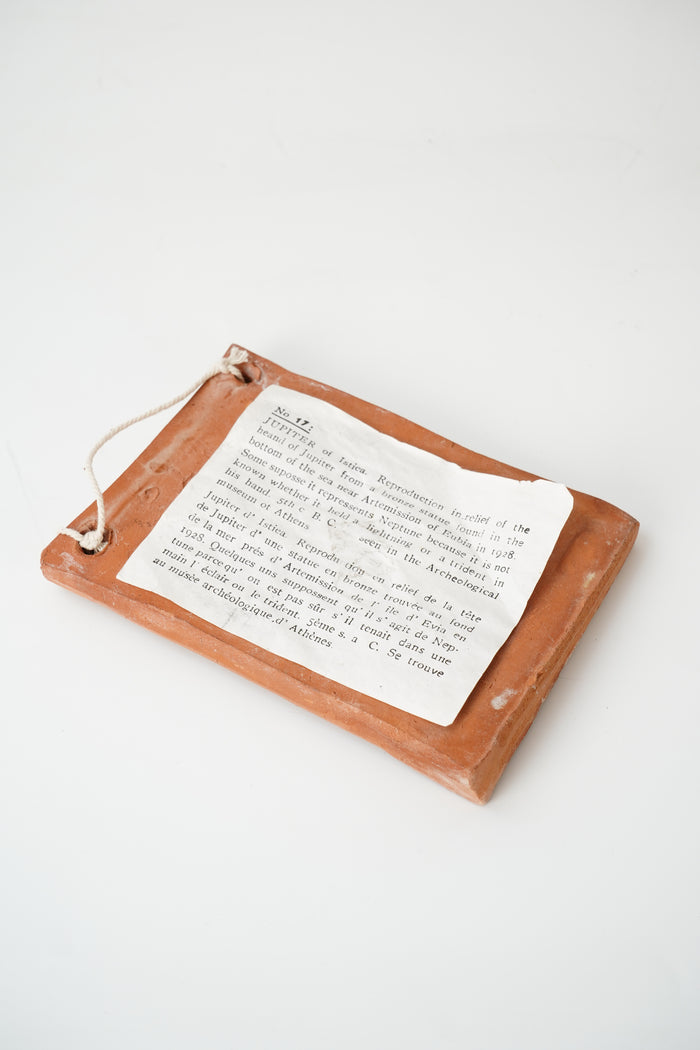 No 17:
JUPITER of Istica. Reproduction in relief of the
heand of Jupiter from a bronze statue found in the
bottom of the sea near Artemission of Eubia in 1928.
Some suposse it repressents Neptune because it is not
known whether it held a lightning or a trident in
his hand. 5th c B. C. seen in the Archeological
museum of Athens
Jupiter d' Istica. Reprodu tion en relief de la tête
de Jupiter d' une statue en bronze trouvée au fond
de la mer prés d' Artemission de l' île d' Evia en
1928. Quelques uns suppossent qu' il s' agit de Nep-
tune parce qu' on est pas sûr s' il tenait dans une
main l' éclair ou le trident. 5ème s. a C. Se trouve
au musée archéologique d' Athènes